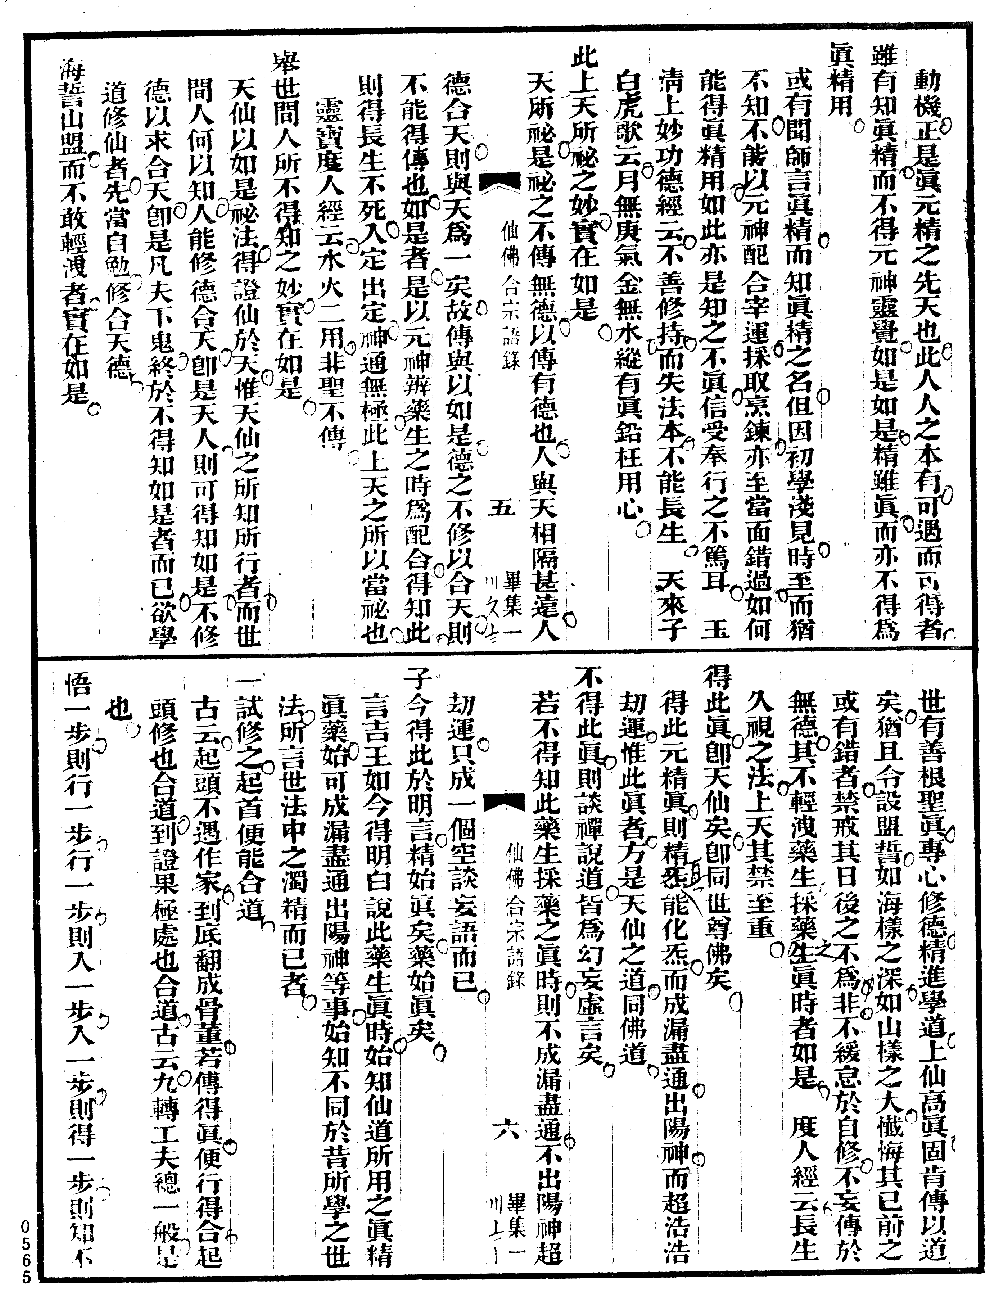 動機正是眞元精之先天也此人人之本有可遇而可得者
雖有知眞精而不得元神靈覺如是如是精雖眞而亦不得爲
眞精用
或有聞師言眞精而知眞精之名但因初學淺見時至而猶
不知不能以元神配合宰運採取烹鍊亦至當面錯過如何
能得眞精用如此亦是知之不眞信受奉行之不篤耳　玉
淸上妙功德經云不善修持而失法本不能長生　天來子
白虎歌云月無庚氣金無水縱有眞鉛枉用心
此上天所祕之妙實在如是
天所祕是祕之不傳無德以傳有德也人與天相隔甚遠人
仙佛合宗語錄　五　畢集一
德合天則與天爲一矣故傳與以如是德之不修以合天則
不能得傳也如是者是以元神辨藥生之時爲配合得知此
則得長生不死入定出定神通無極此上天之所以當祕也
靈寶度人經云水火二用非聖不傳
舉世間人所不得知之妙實在如是
天仙以如是祕法得證仙於天惟天仙之所知所行者而世
間人何以知人能修德合天卽是天人則可得知如是不修
德以求合天卽是凡夫下鬼終於不得知如是者而已欲學
道修仙者先當自勉修合天德
海誓山盟而不敢輕洩者實在如是
世有善根聖眞專心修德精進學道上仙高眞固肯傳以道
矣猶且令設盟誓如海樣之深如山樣之大懺悔其已前之
或有錯者禁戒其日後之不爲非不緩怠於自修不妄傳於
無德其不輕洩藥生採藥之生眞時者如是　度人經云長生
久視之法上天其禁至重
得此眞卽天仙矣卽同世尊佛矣
得此元精眞則精炁能化炁而成漏盡通出陽神而超浩浩
劫運惟此眞者方是天仙之道同佛道
不得此眞則談禪說道皆爲幻妄虛言矣
若不得知此藥生採藥之眞時則不成漏盡通不出陽神超
仙佛合宗語錄　六　畢集一
劫運只成一個空談妄語而已
子今得此於明言精始眞矣藥始眞矣
言吉王如今得明白說此藥生眞時始知仙道所用之眞精
眞藥始可成漏盡通出陽神等事始知不同於昔所學之世
法所言世法中之濁精而已者
一試修之起首便能合道
古云起頭不遇作家到底翻成骨董若傳得眞便行得合起
頭修也合道到證果極處也合道古云九轉工夫總一般是
也
悟一步則行一步行一步則入一步入一步則得一步則知不
0565